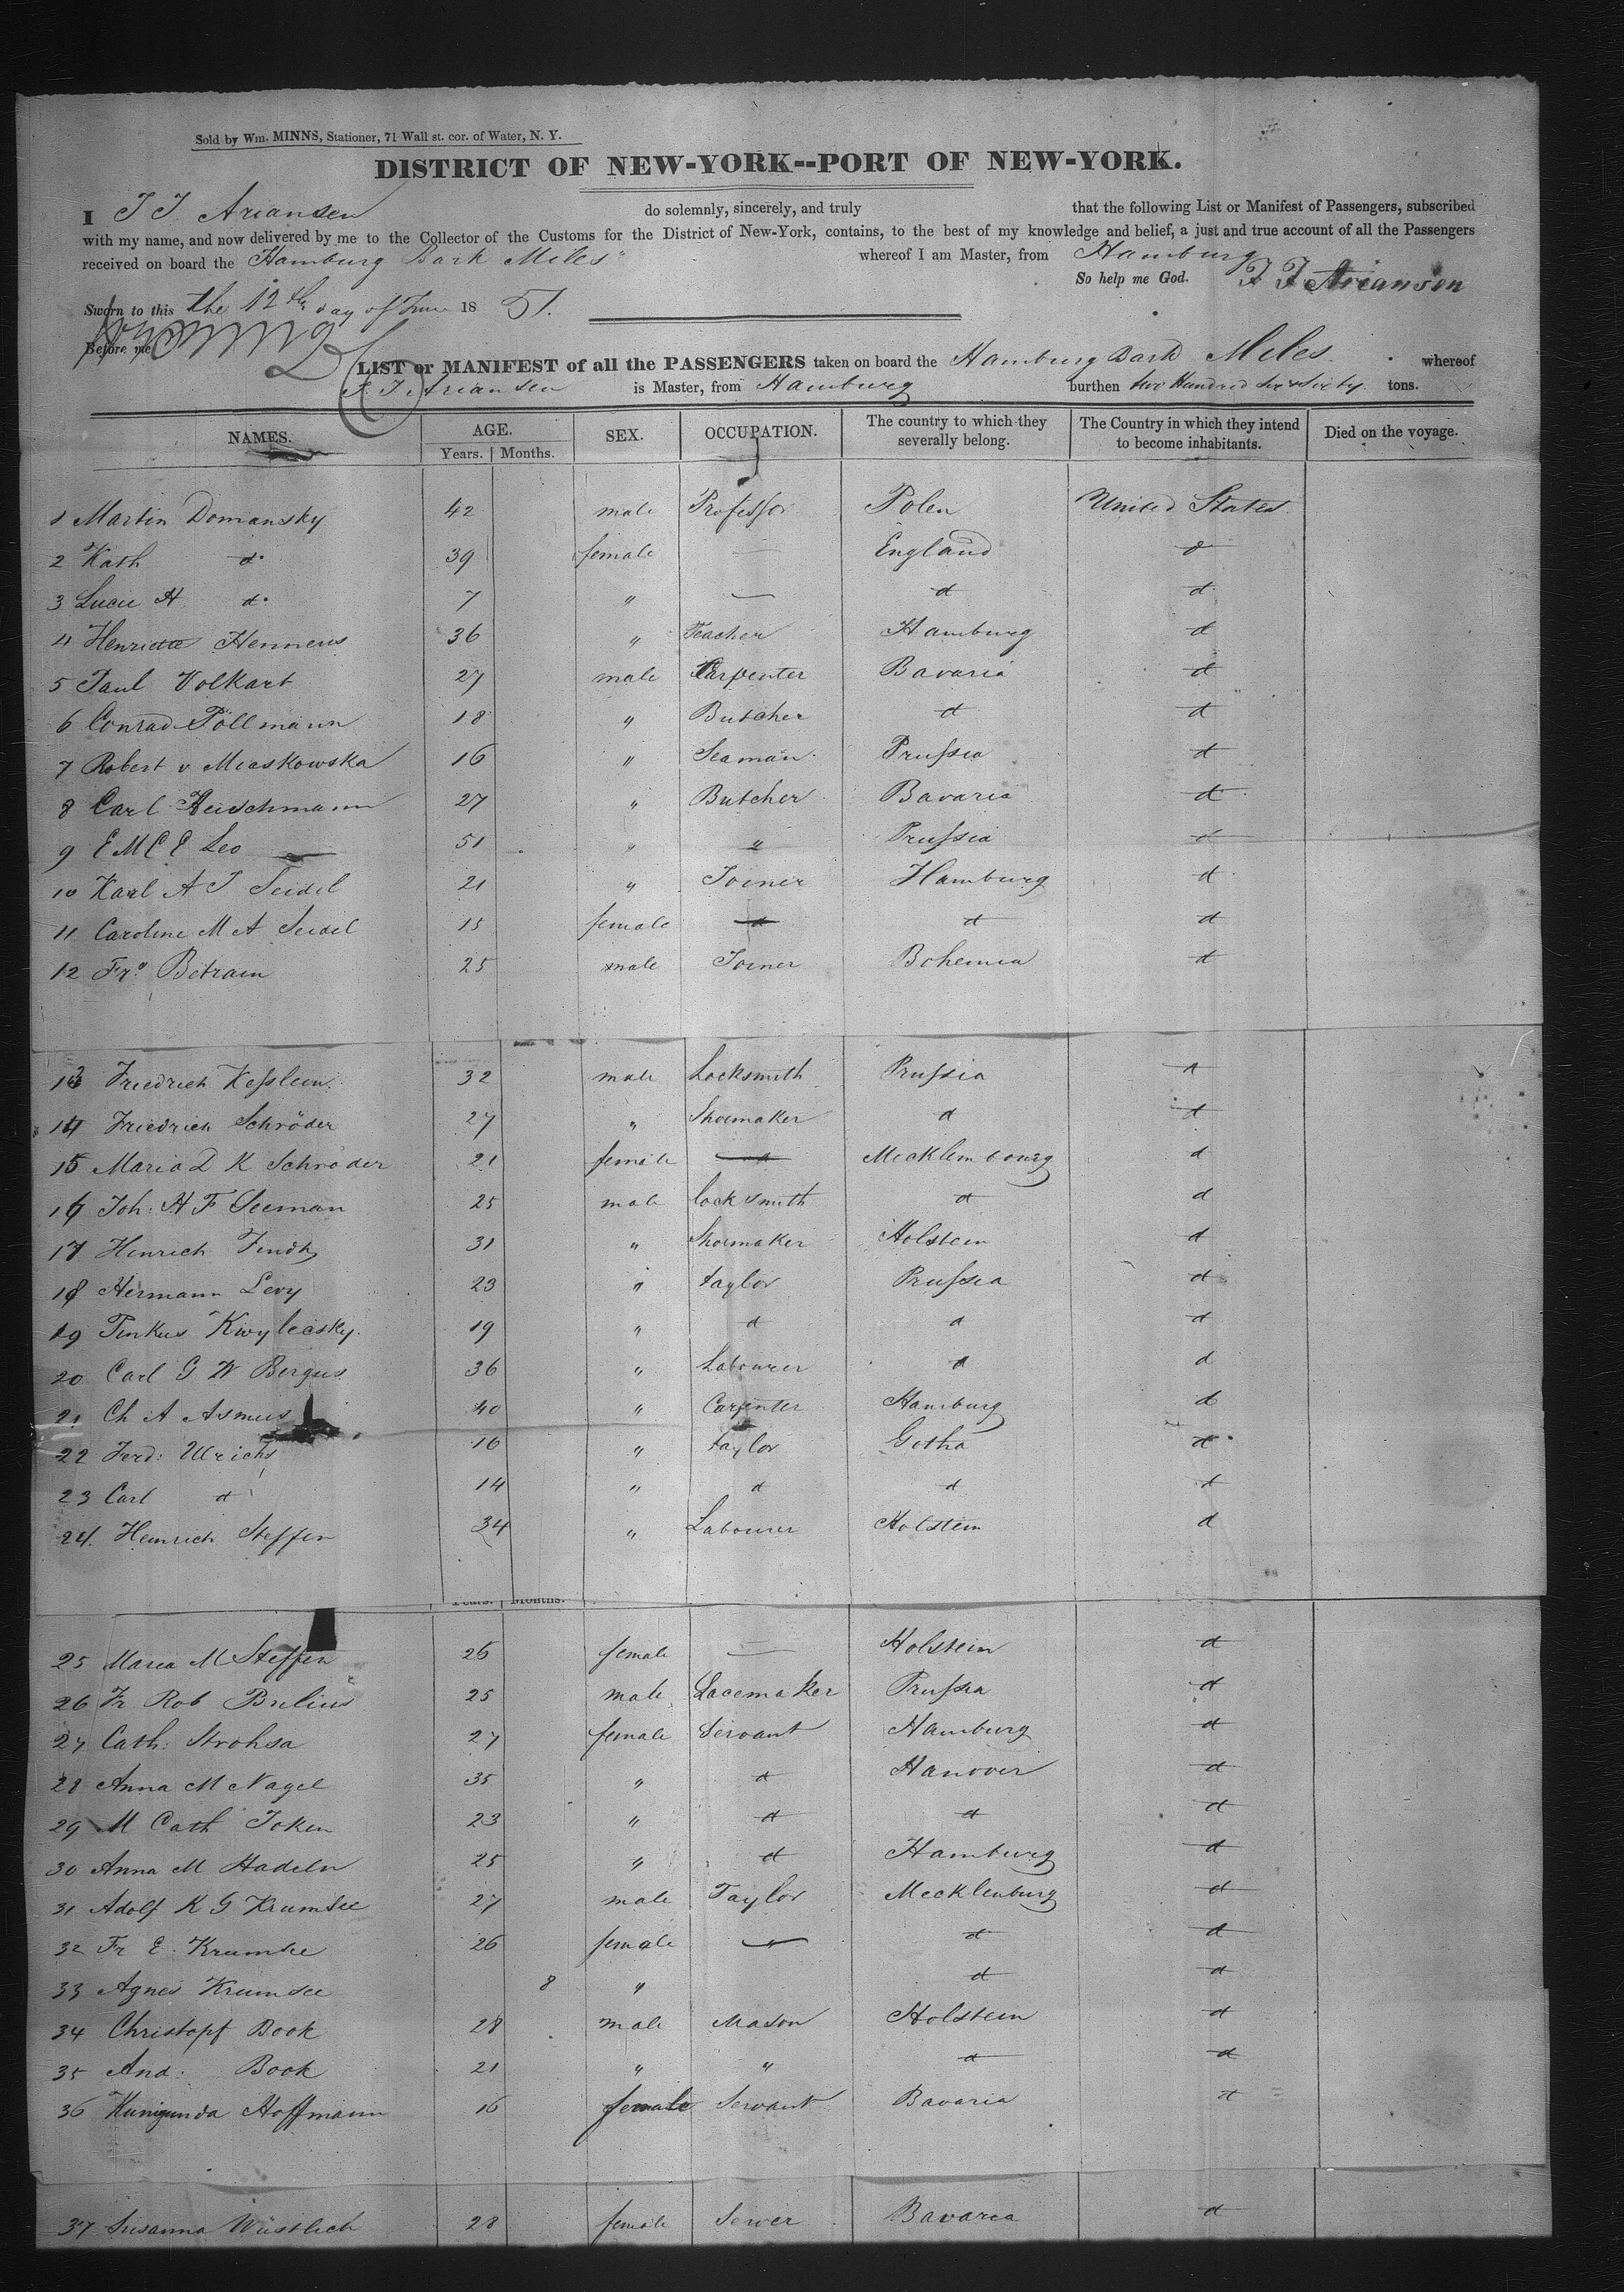 Sold by Wm. MINNS, Stationer, 71 Wall st. cor. of Water, N. Y.
DISTRICT OF NEW-YORK--PORT OF NEW-YORK.
I J J Ariansen do solemnly, sincerely, and truly that the following List or Manifest of Passengers, subscribed
with my name, and now delivered by me to the Collector of the Customs for the District of New-York, contains, to the best of my knowledge and belief, a just and true account of all the Passengers
received on board the Hamburg Bark Miles" whereof I am Master, from Hamburg
So help me God. J J Ariansen
Sworn to this the 12th day of June 1851.
Before me
LIST or MANIFEST of all the PASSENGERS taken on board the Hamburg Bark Miles. whereof
J. J. Ariansen is Master, from Hamburg burthen two Hundred six & sixty tons.
NAMES. AGE. Years. Months. SEX. OCCUPATION. The country to which they severally belong. The Country in which they intend to become inhabitants. Died on the voyage.
1 Martin Domansky 42 male Professor Polen United States
2 Kath do 39 female — England d
3 Lucie H do 7 " — d d
4 Henriette Hennens 36 " Teacher Hamburg d
5 Paul Volkart 27 male Carpenter Bavaria d
6 Conrad Pöllmann 18 " Butcher d d
7 Robert v Miaskowska 16 " Seaman Prussia d
8 Carl 27 " Butcher Bavaria d
9 E M C E Leo 51 " " Prussia d
10 Karl A J Seidel 21 " Joiner Hamburg d
11 Caroline M A Seidel 15 female d d
12 Frs Betram 25 male Joiner Bohemia d
13 Friedrich Kesslein 32 male Locksmith Prussia d
14 Friedrich Schröder 27 " Shoemaker d d
15 Maria D K Schröder 21 female Mecklembourg d
16 Joh: H F Seeman 25 male locksmith d d
17 Hinrich 31 " Shoemaker Holstein d
18 Hermann Levy 23 " taylor Prussia d
19 Pinkus Kwylecsky 19 " d d d
20 Carl G W Bergus 36 " Labourer d d
21 Ch A Asmus 40 " Carpinter Hamburg d
22 Ferd: Ulrichs 16 " taylor Gotha d
23 Carl d 14 " d d d
24. Heinrich Steffen 34 " Labourer Holstein d
Years. Months.
25 Maria M Steffen 26 female — Holstein d
26 Fr Rob Brelius 25 male Lacemaker Prussia d
27 Cath: Strohsa 27 female Servant Hamburg d
28 Anna M Nagel 35 " d Hanover d
29 M Cath Token 23 " d d d
30 Anna M Hadeln 25 " d Hamburg d
31 Adolf K G Krumsee 27 male Taylor Mecklenburg d
32 Fr E. Krumsee 26 female d d
33 Agnes Krumsee 8 " d d
34 Christopf Book 28 male Mason Holstein d
35 And: Book 21 " " d d
36 Kunigunda Hoffmann 16 female Servant Bavaria d
37 Susanna Wüstlich 28 female Sewer Bavaria d